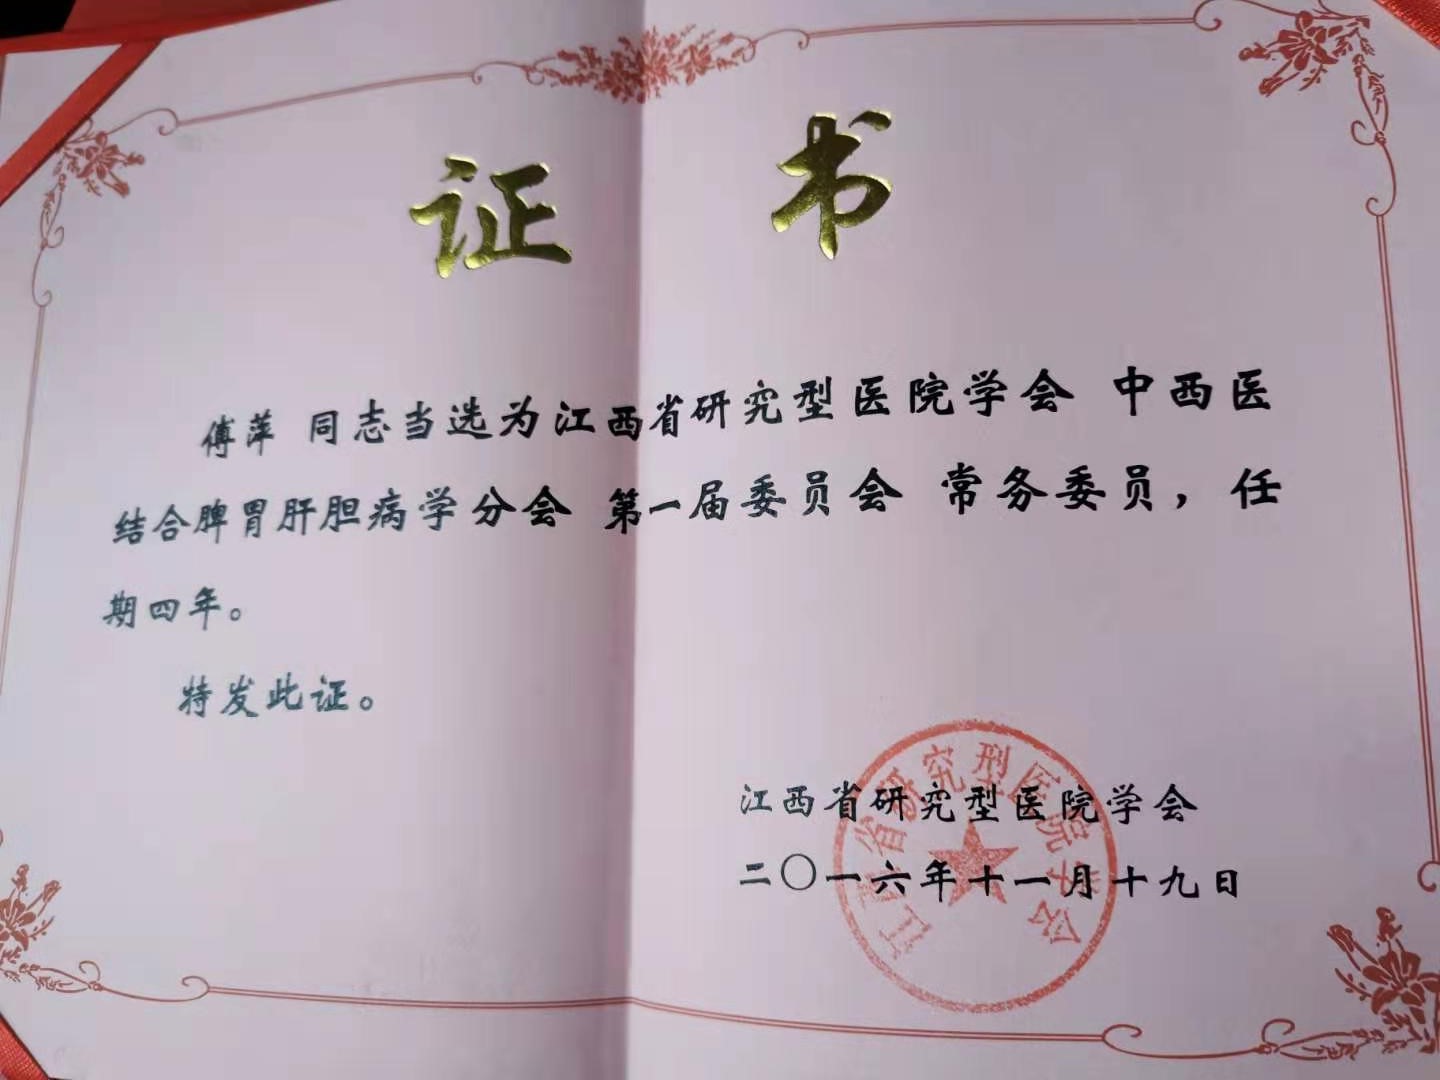 证书
傅萍 同志当选为江西省研究型医院学会 中西医
结合脾胃肝胆病学分会 第一届委员会 常务委员，任
期四年。
特发此证。
江西省研究型医院学会
江西省研究型医院学会
二〇一六年十一月十九日